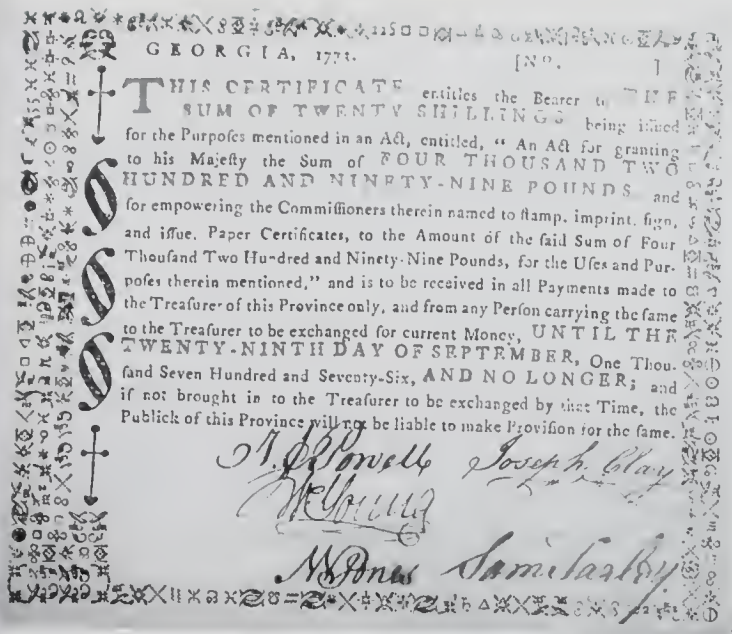 GEORGIA, 1773. [No. ]
THIS CERTIFICATE entitles the Bearer to THE
SUM OF TWENTY SHILLINGS being iſſued
for the Purpoſes mentioned in an Act, entitled, “ An Act for granting
to his Majeſty the Sum of FOUR THOUSAND TWO
HUNDRED AND NINETY-NINE POUNDS and
for empowering the Commiſſioners therein named to ſtamp, imprint, ſign,
and iſſue, Paper Certificates, to the Amount of the ſaid Sum of Four
Thouſand Two Hundred and Ninety-Nine Pounds, for the Uſes and Pur-
poſes therein mentioned,” and is to be received in all Payments made to
the Treaſurer of this Province only, and from any Perſon carrying the ſame
to the Treaſurer to be exchanged for current Money, UNTIL THE
TWENTY-NINTH DAY OF SEPTEMBER, One Thou-
ſand Seven Hundred and Seventy-Six, AND NO LONGER; and
if not brought in to the Treaſurer to be exchanged by that Time, the
Publick of this Province will not be liable to make Proviſion for the ſame.
Powell Joseph Clay
Wm Young
N Jones Saml Farley